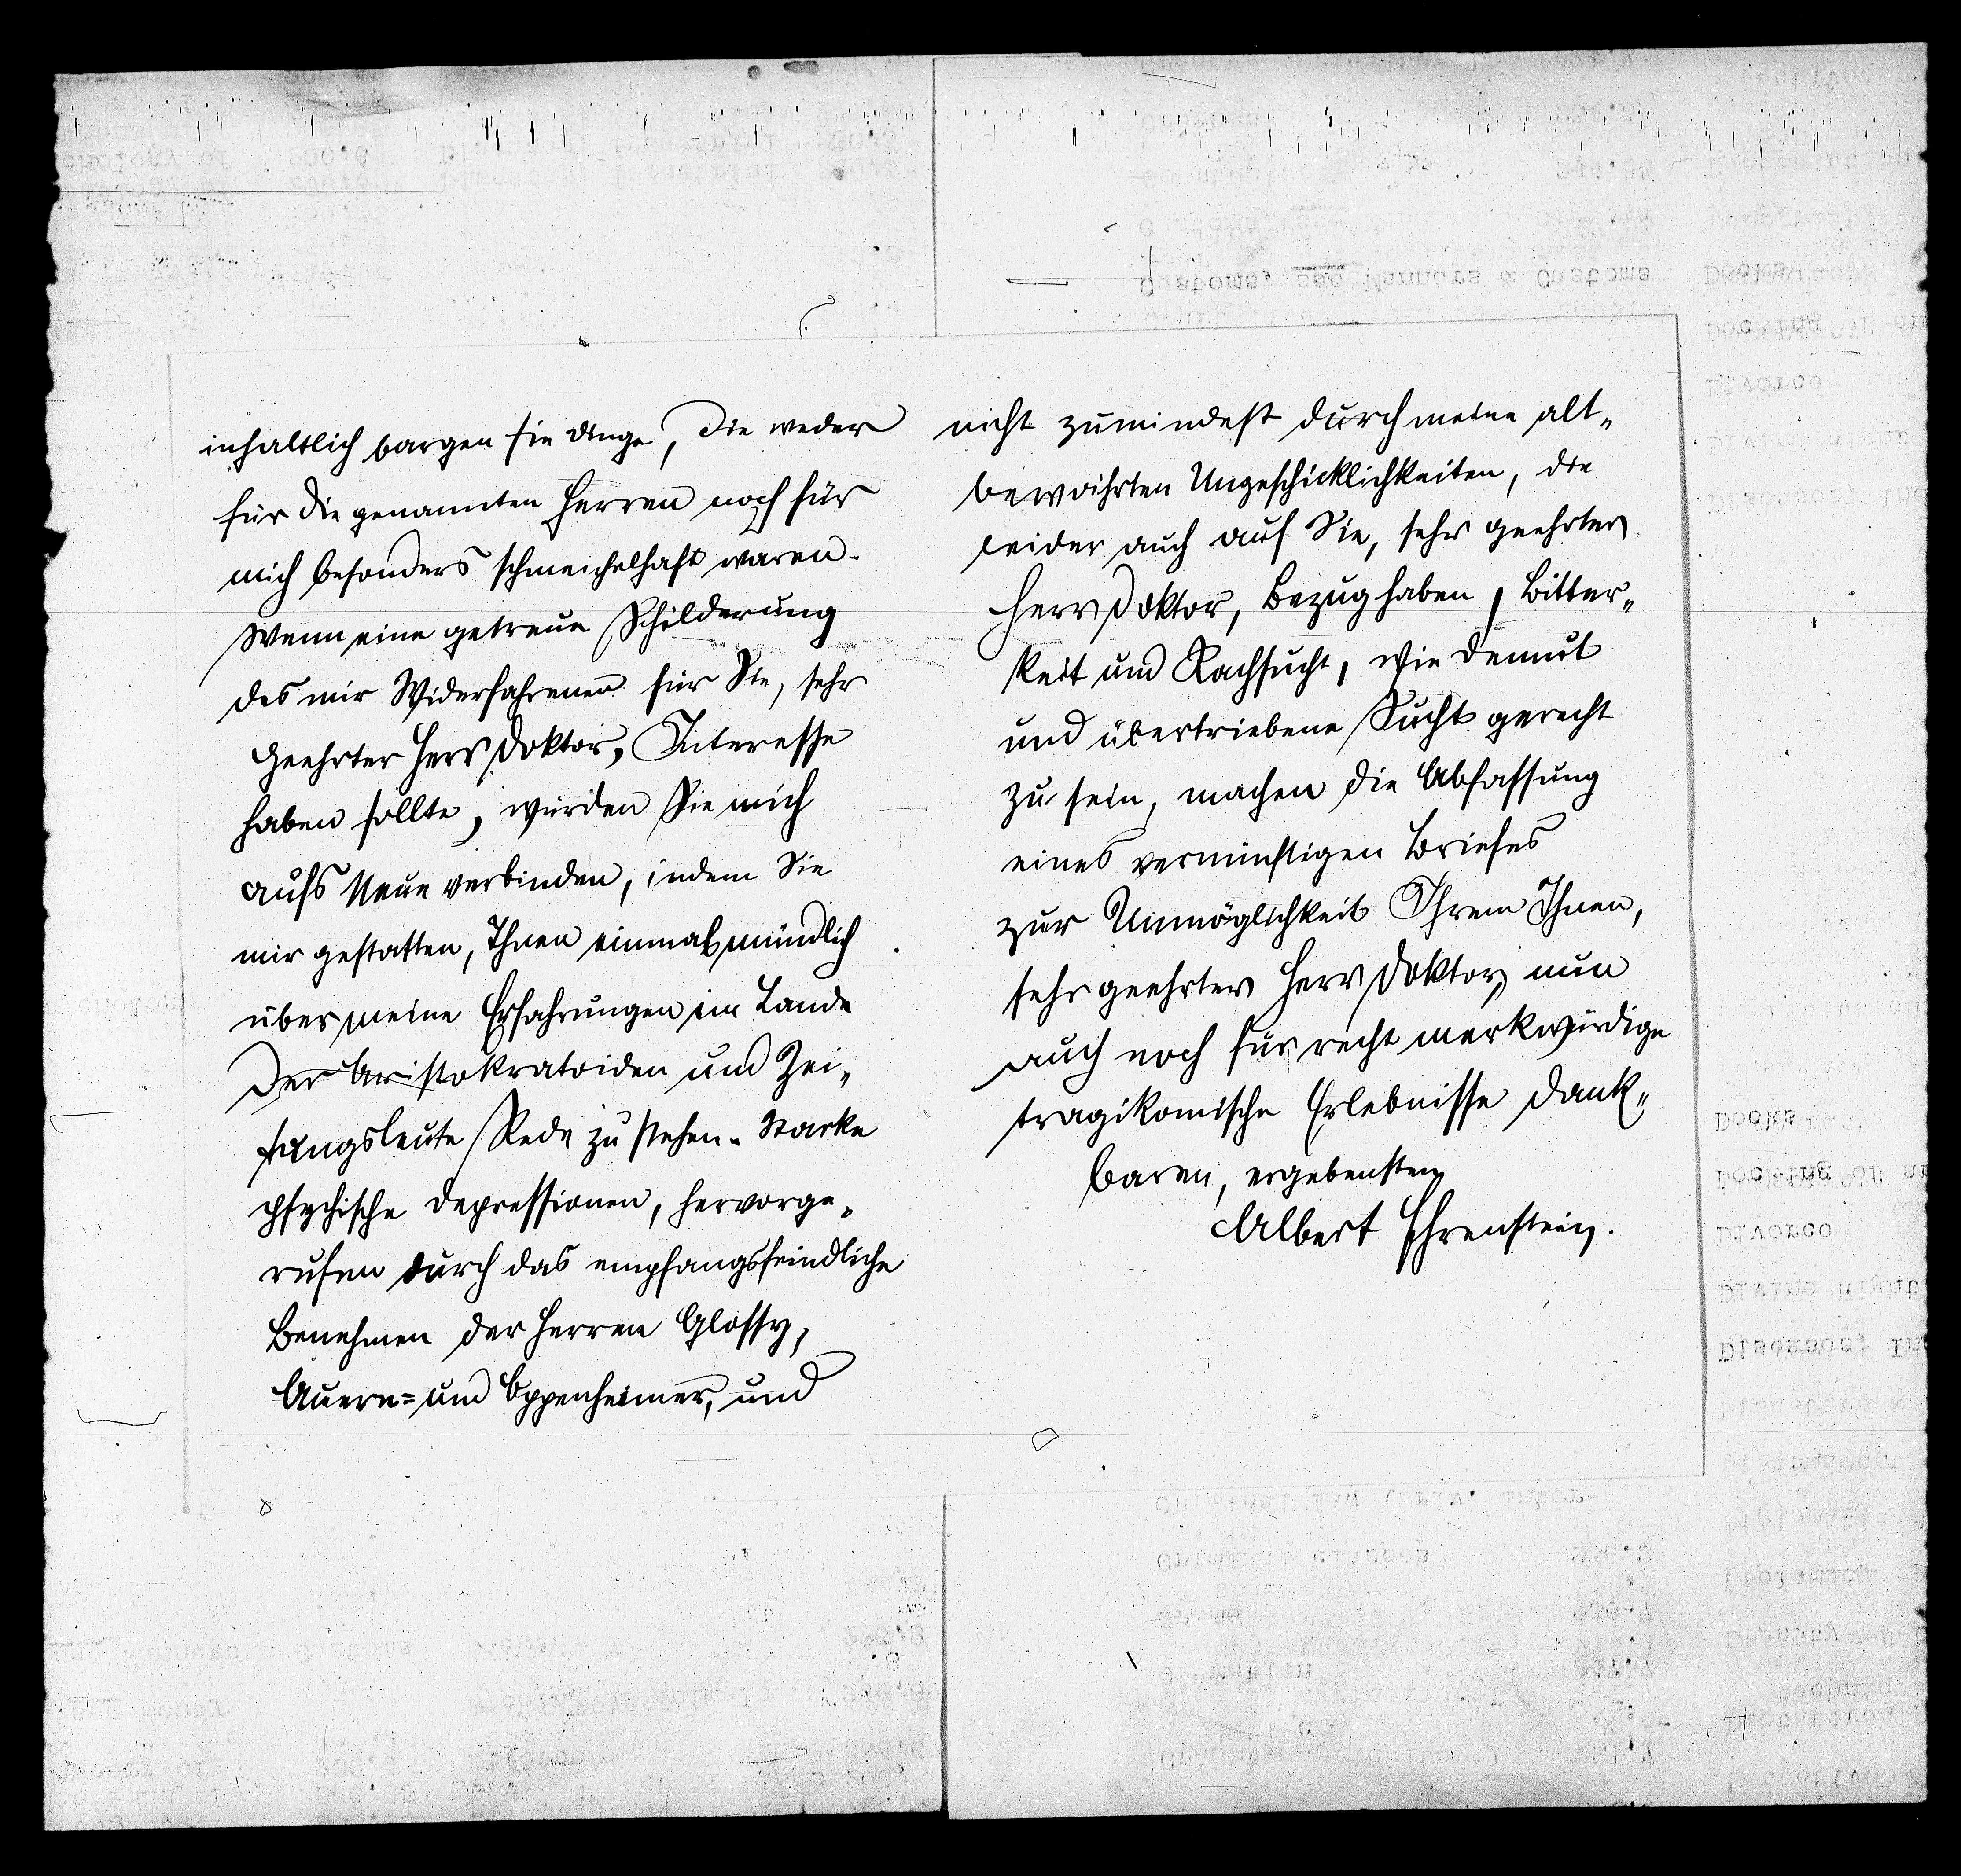 inhaltlich bargen sie Dinge, die weder
für die genannten Herren noch für
mich besonders schmeichelhaft waren.
Wenn eine getreue Schilderung
des mir Widerfahrenen für Sie, sehr
geehrter Herr Doktor, Interesse
haben sollte, würden Sie mich
aufs Neue verbinden, indem Sie
mir gestatten, Ihnen einmal mündlich
über meine Erfahrungen im Lande
der Aristokratoiden und Zei-
tungsleute Rede zu stehen. Starke
psychische Depressionen, hervorge-
rufen durch das empfangsfeindliche
Benehmen der Herren Glossy,
Auern= und Oppenheimer, und
nicht zumindest durch meine alt-
bewährten Ungeschicklichkeiten, die
leider auch auf Sie, sehr geehrter
Herr Doktor, Bezug haben, Bitter-
keit und Rachsucht, wie Demut
und übertriebene Sucht gerecht
zu sein, machen die Abfassung
eines vernünftigen Briefes
zur Unmöglichkeit Ihrem Ihnen,
sehr geehrter Herr Doktor, nun
auch noch für recht merkwürdige
tragikomische Erlebnisse dank-
baren, ergebensten
Albert Ehrenstein.
Customs, see Manners & Customs
Divorce
Books
Divorce